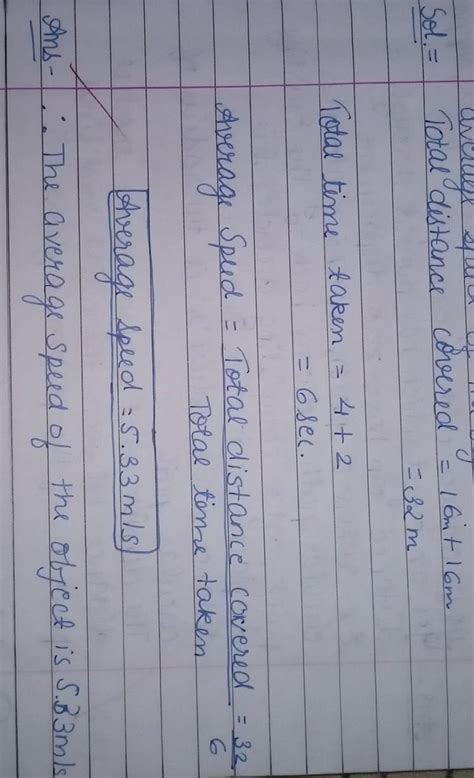 average
Sol. = Total distance covered = 16m + 16m
= 32m
Total time taken = 4 + 2
= 6 sec.
Average Speed = Total distance covered = 32
Total time taken 6
Average Speed = 5.33 m/s
Ans - ∴ The average Speed of the object is 5.33 m/s